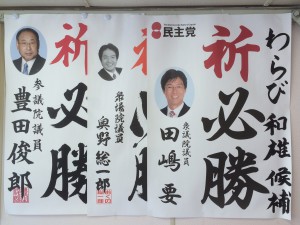 民主党
わらび 和雄 候補
祈
必勝
衆議院議員
田嶋 要
祈
必勝
衆議院議員
奥野 総一郎
祈
必勝
参議院議員
豊田俊郎